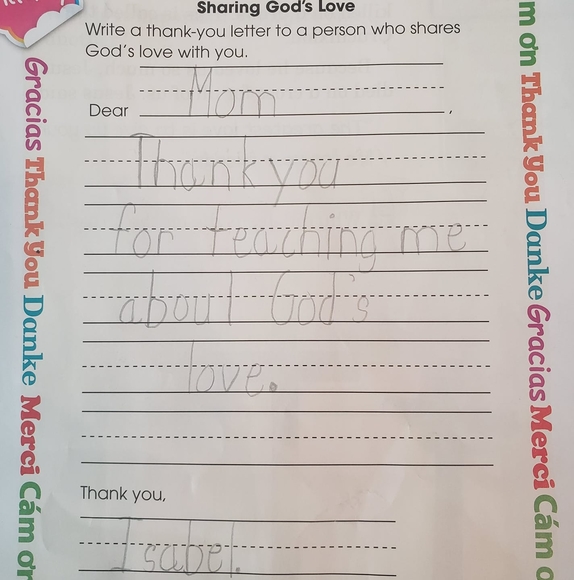 Sharing God's Love
Write a thank-you letter to a person who shares
God's love with you.
Dear Mom,
Thank you
for teaching me
about God's
love.
Thank you,
Isabel.
Gracias Thank You Danke Merci Cám ơn
m ơn Thank You Danke Gracias Merci Cám